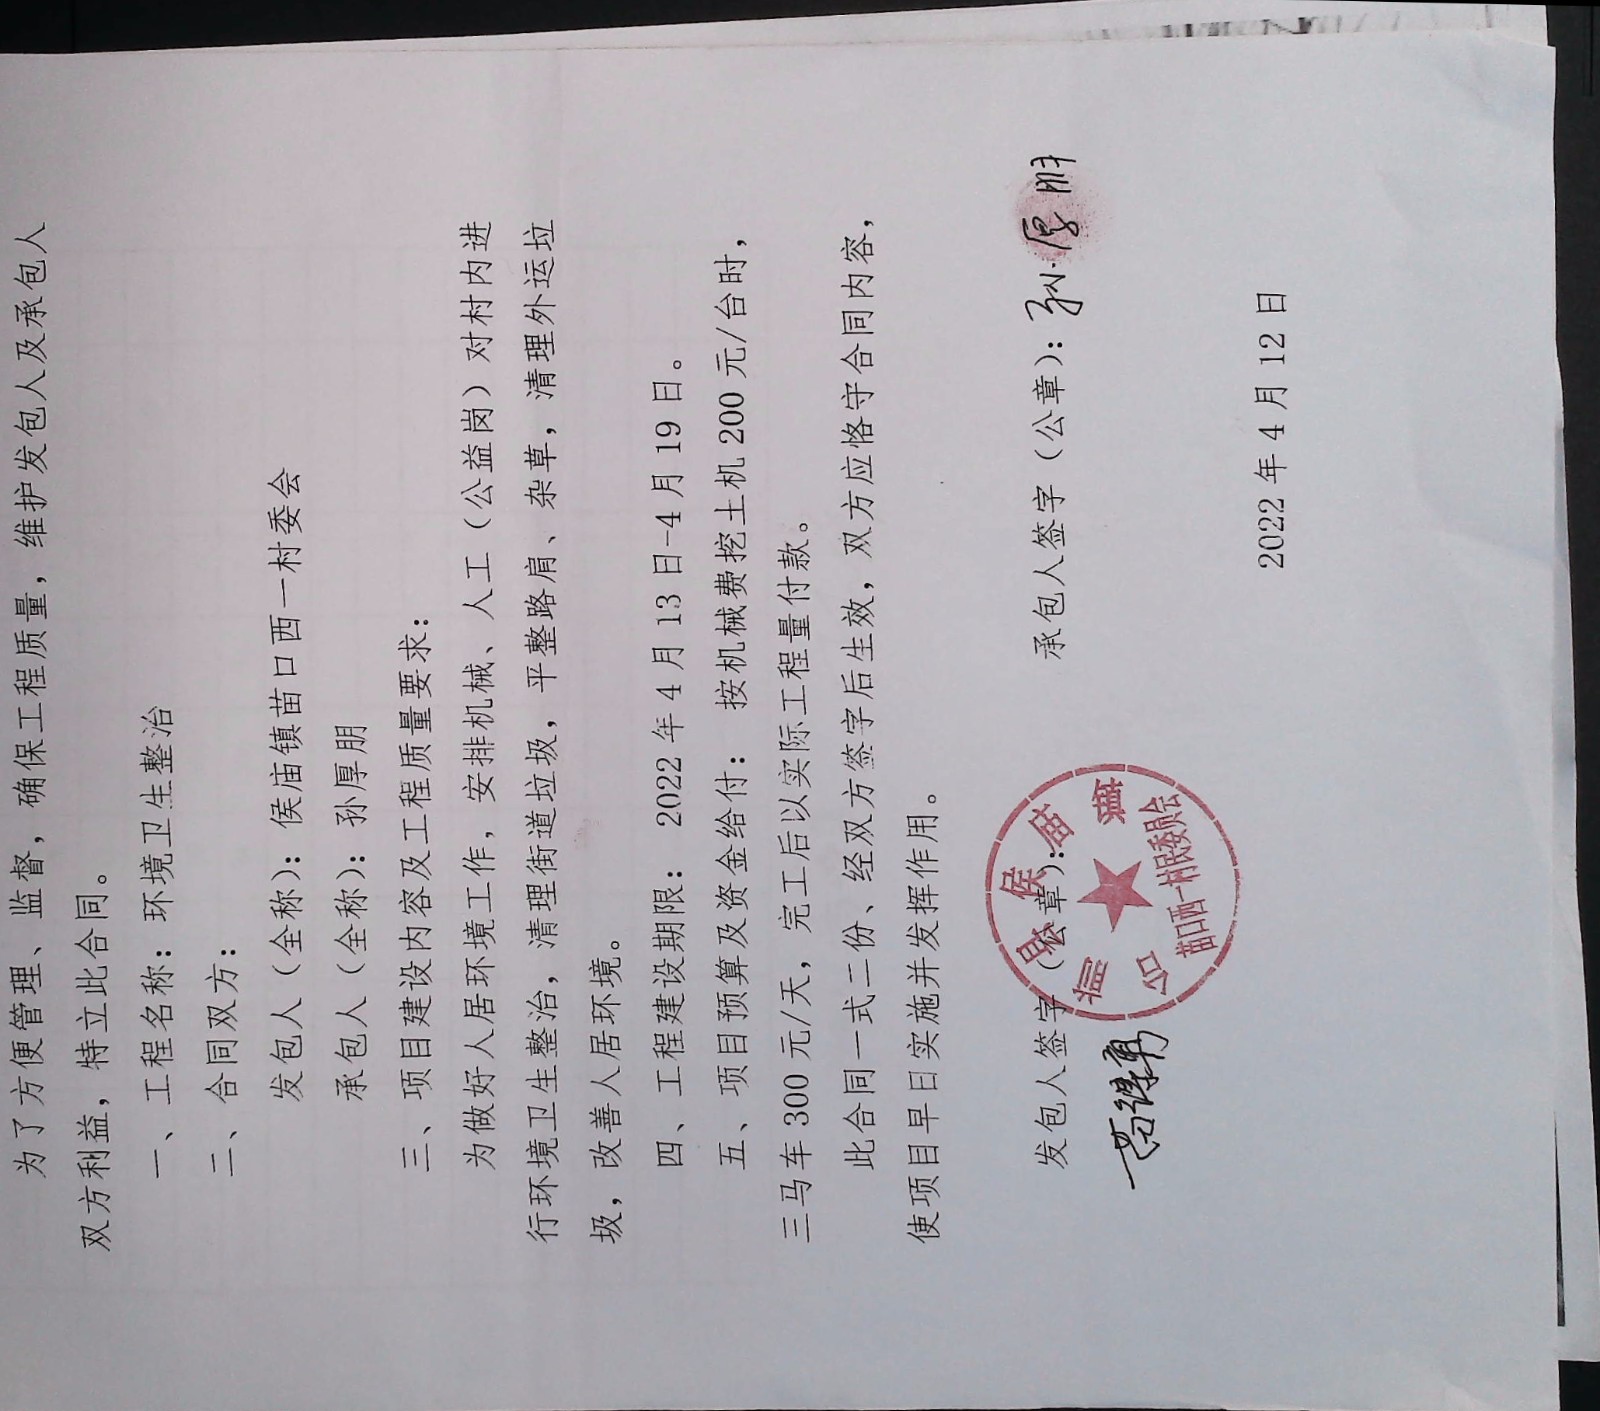 为了方便管理、监督，确保工程质量，维护发包人及承包人
双方利益，特立此合同。
一、工程名称：环境卫生整治
二、合同双方：
发包人（全称）：侯庙镇苗口西一村委会
承包人（全称）：孙厚朋
三、项目建设内容及工程质量要求：
为做好人居环境工作，安排机械、人工（公益岗）对村内进
行环境卫生整治，清理街道垃圾，平整路肩、杂草，清理外运垃
圾，改善人居环境。
四、工程建设期限： 2022 年 4 月 13 日-4 月 19 日。
五、项目预算及资金给付：按机械费挖土机 200 元/台时，
三马车 300 元/天，完工后以实际工程量付款。
此合同一式二份、经双方签字后生效，双方应恪守合同内容，
使项目早日实施并发挥作用。
发包人签字（公章）： 承包人签字（公章）：孙厚朋
侯庙镇
苗口西一村民委员会
2022 年 4 月 12 日